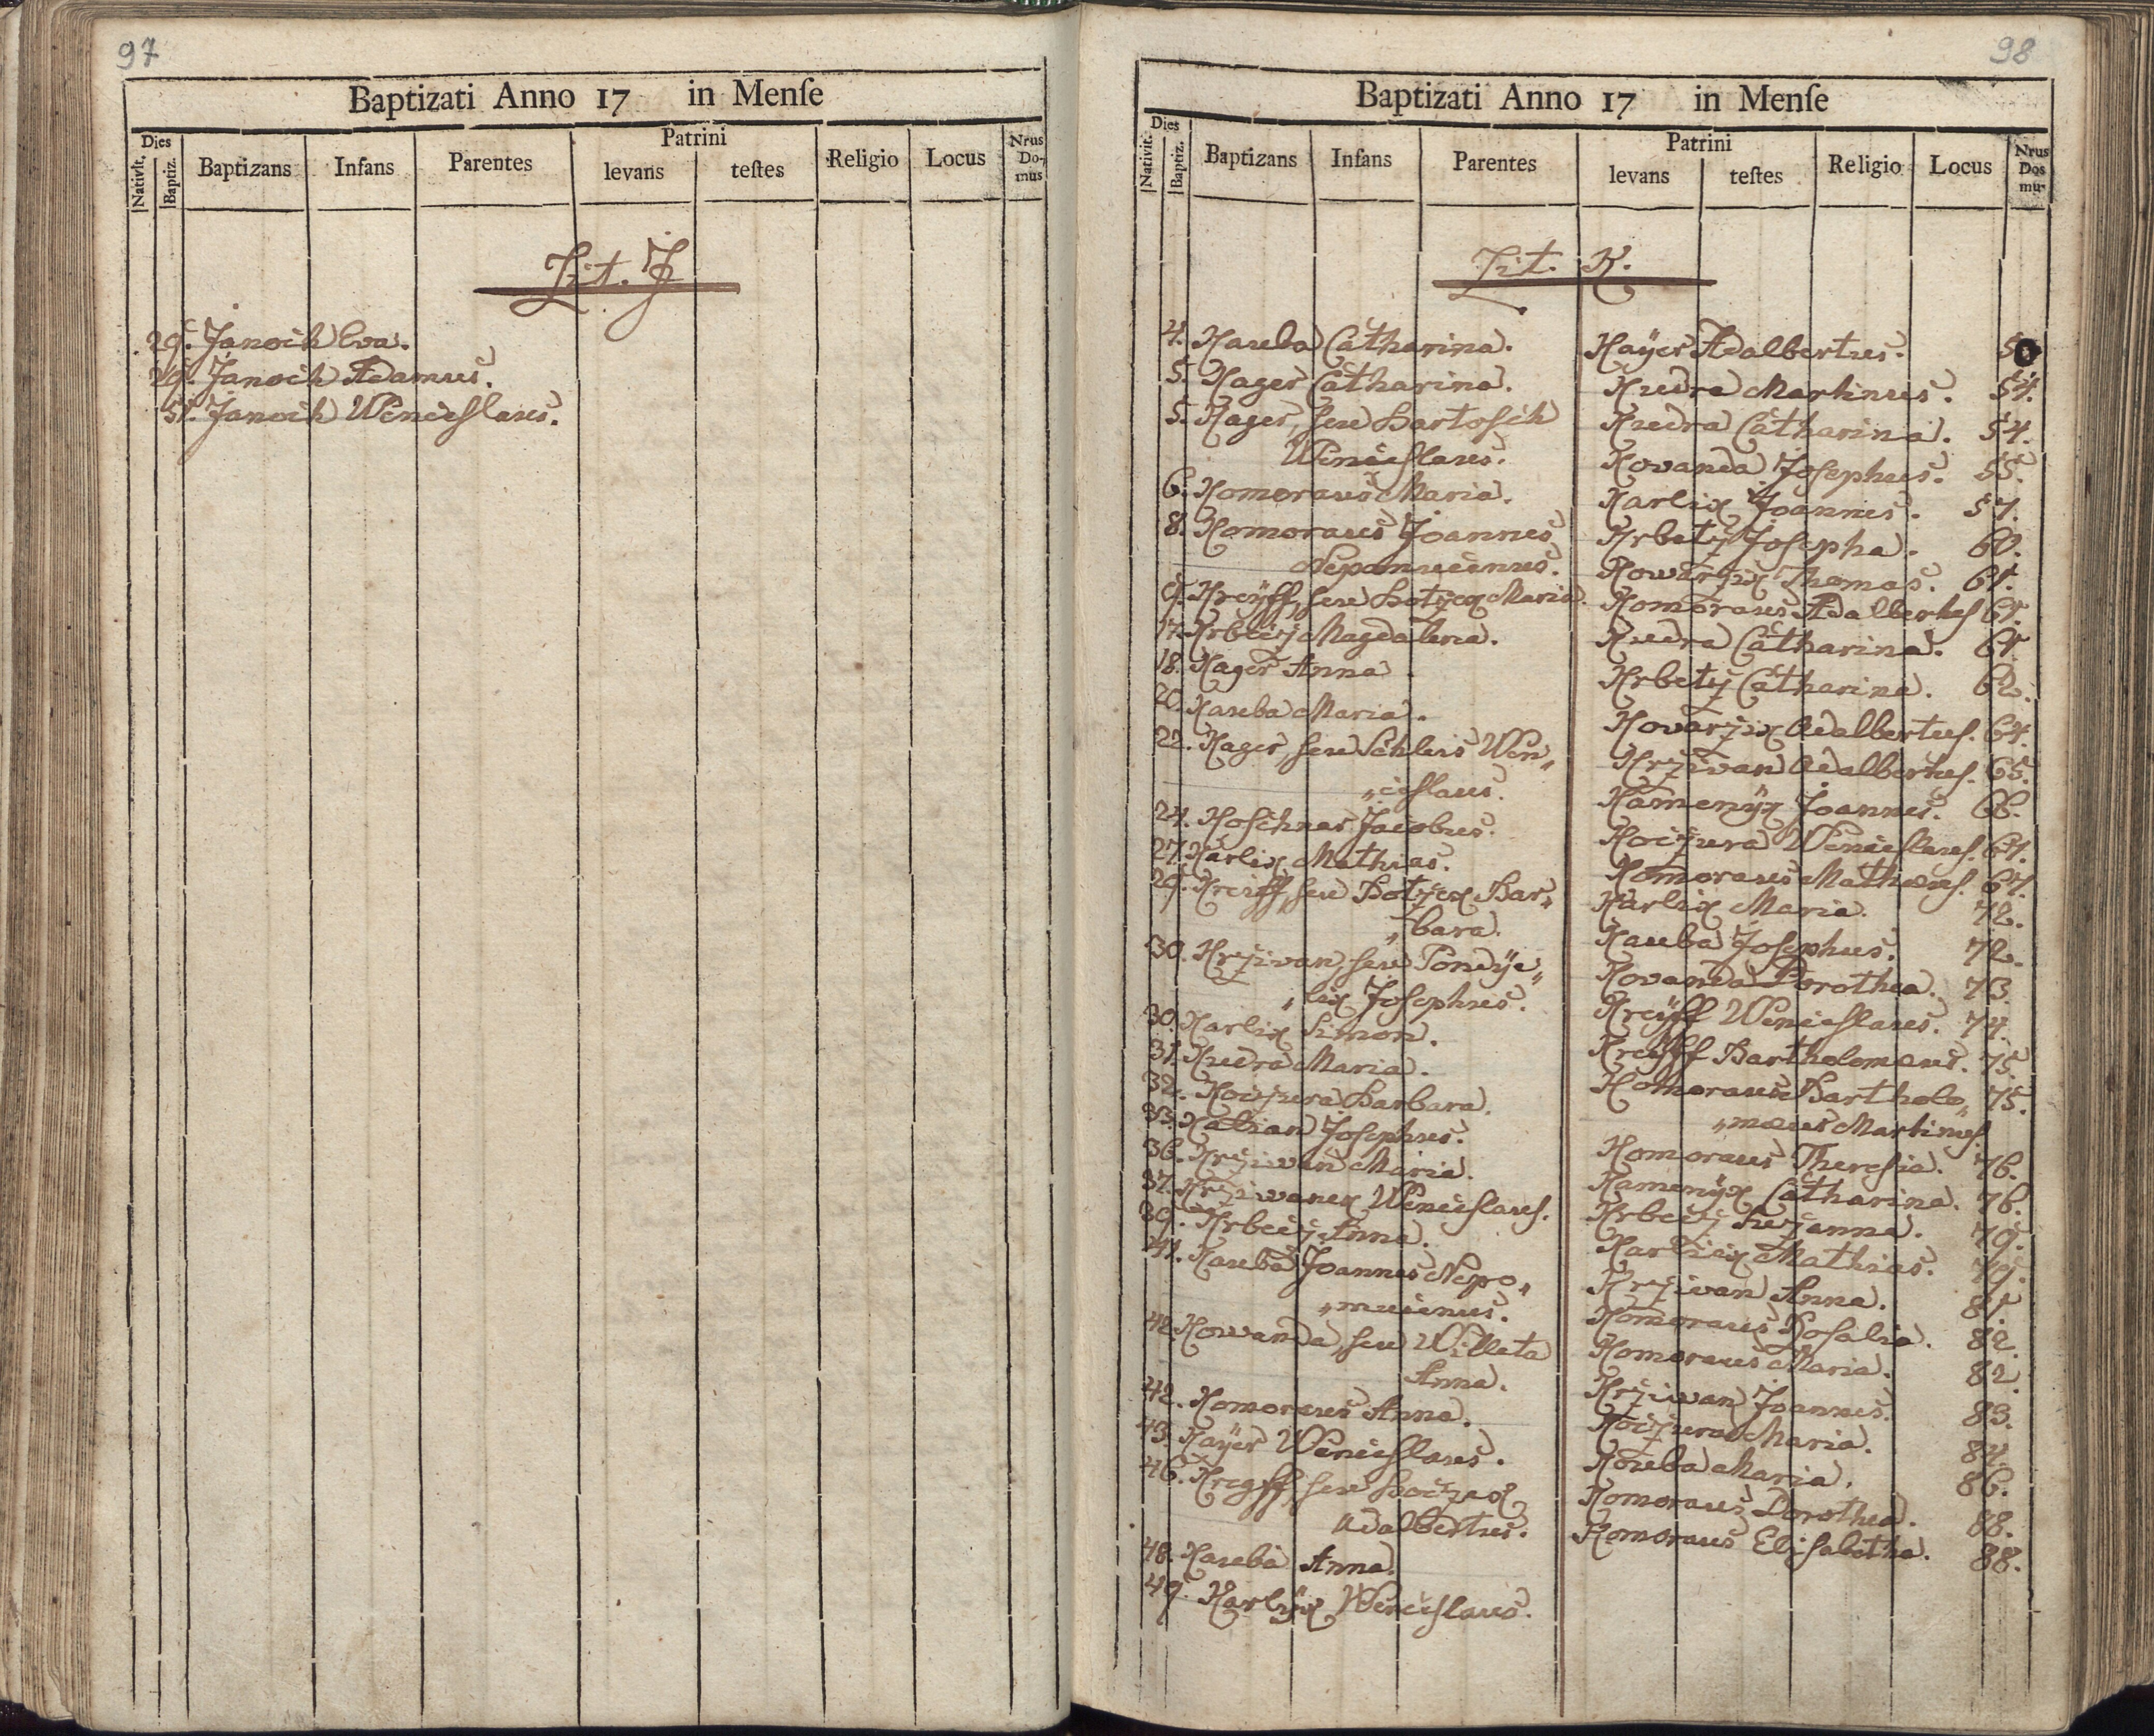 97
Baptizati Anno 17 in Menſe
Dies
Nativit.
Baptiz.
Baptizans
Infans
Parentes
Patrini
levans
teſtes
Religio
Locus
Nrus
Do-
mus
Lit. J
29. Janoch Eva.
29. Janoch Adamus.
51. Janoch Wenceſlaus.
98
Baptizati Anno 17 in Menſe
Dies
Nativit.
Baptiz.
Baptizans
Infans
Parentes
Patrini
levans
teſtes
Religio
Locus
Nrus
Dos
mu-
Lit. K.
4. Kauba Catharina.
5. Kager Catharina.
5. Kager, seu Bartosch
Wenceſlaus.
6. Komoraus Maria.
8. Komoraus Joannes
Nepomucenus.
9. Kreyff, seu Botzek Maria.
17. Krbecz Magdalena.
18. Kager Anna.
20. Kauba Maria.
22. Kager, seu Schleis Wen„
„ceſlaus.
24. Koschnar Jacobus.
27. Karlix Mathias.
29. Kreiff, seu Botzek Bar„
„bara.
30. Krzivan, seu Pondye„
„lix Josephus.
30. Karlix Simon.
31. Kudra Maria.
32. Koczura Barbara.
33. Kalian Josephus.
36. Krziwan Maria.
37. Krziwanek Wenceſlaus.
39. Krbecz Anna.
41. Kauba Joannes Nepo„
„mucenus.
42. Kowanda, seu Willata
Anna.
42. Komoraus Anna.
43. Kayer Wenceſlaus.
46. Kreyff, seu Boczek
Adalbertus.
48. Kauba Anna.
49. Karlyx Wenceſlaus.
Kayer Adalbertus. 50
Kudra Martinus. 54.
Kudra Catharina. 54.
Kovanda Josephus. 55.
Karlix Joannes. 57.
Krbety Josepha. 60.
Kowarzix Thomas. 61.
Komoraus Adalbertus 61.
Kudra Catharina. 61.
Krbety Catharina. 62.
Kovarzix Adalbertus. 64.
Krzivan Adalbertus. 65.
Kamenyx Joannes. 66.
Koczura Wenceſlaus. 67.
Komoraus Mathæus. 67.
Karlix Maria. 72.
Kauba Josephus. 72.
Kovanda Dorothea. 73.
Kreyff Wenceſlaus. 74.
Kreyff Bartholomæus. 75.
Komoraus Bartholo„ 75.
„mæus Martinus.
Komoraus Theresia. 76.
Kamenyx Catharina. 76.
Krbecz Suzanna. 79.
Karlicx Mathias. 79.
Krzivan Anna. 81.
Komoraus Rosalia. 82.
Komoraus Maria. 82.
Krziwan Joannes. 83.
Koczura Maria. 84.
Kouba Maria. 86.
Komoraus Dorothea. 88.
Komoraus Elisabetha. 88.